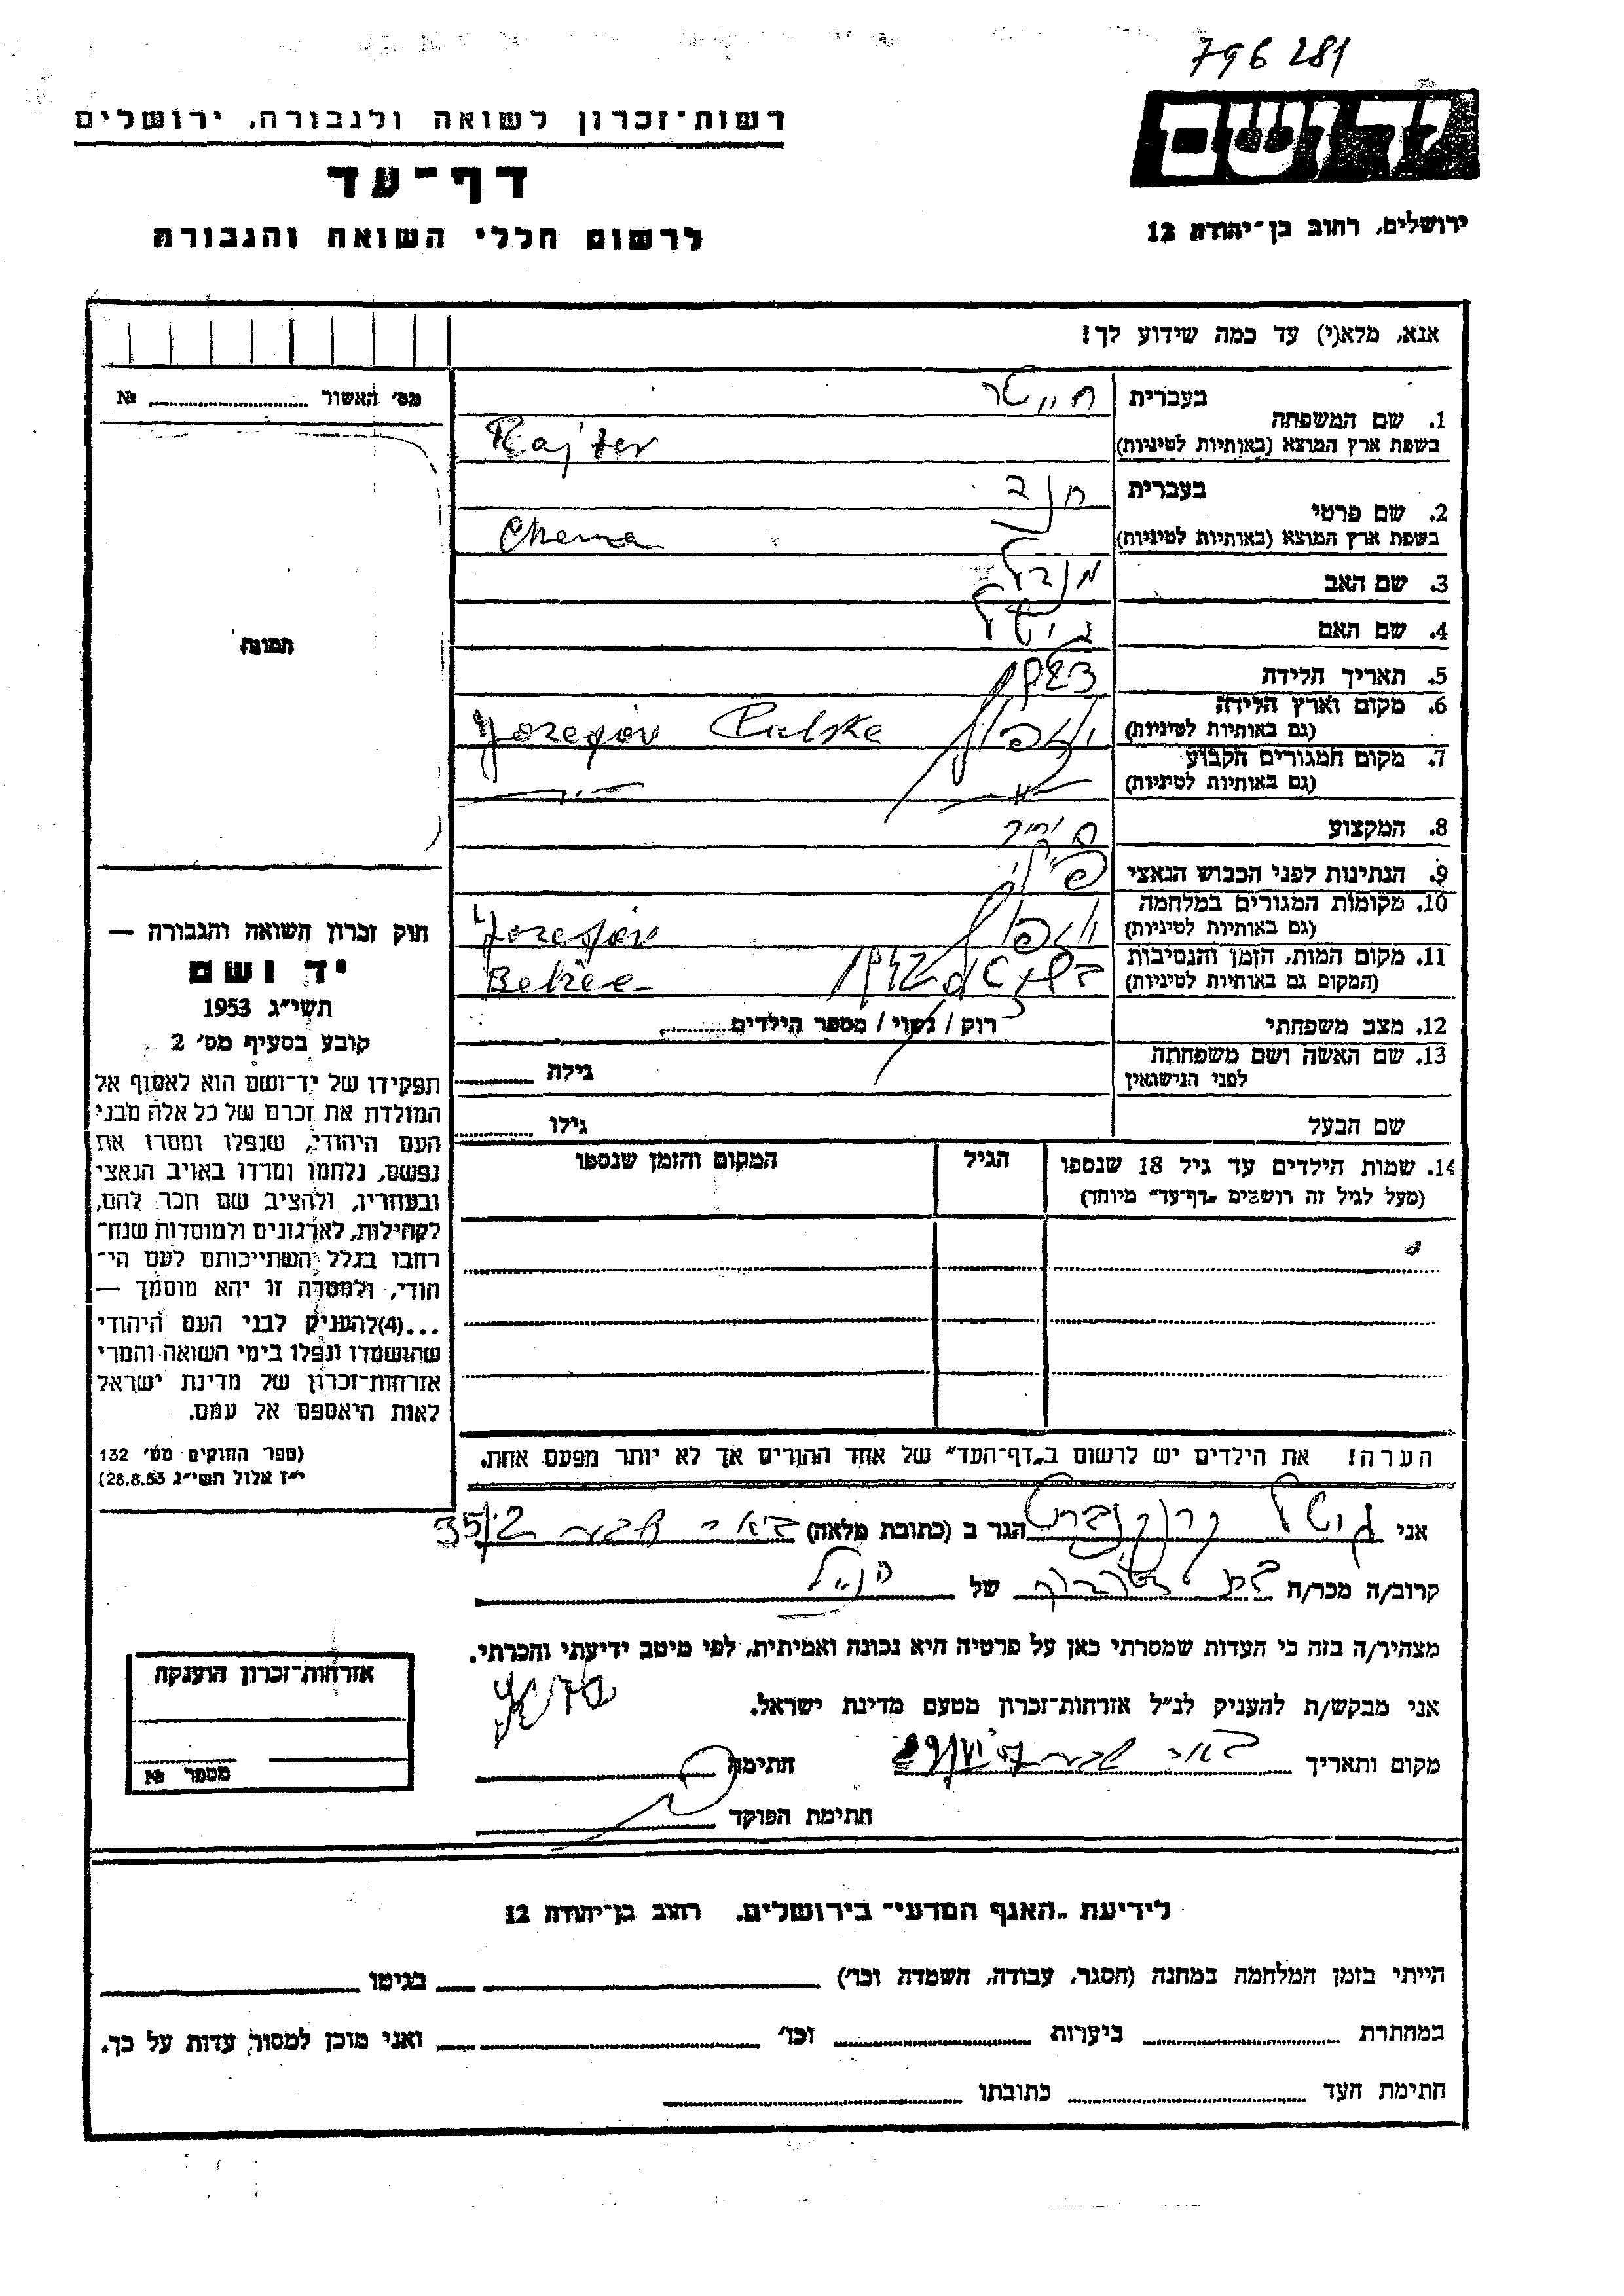 796281
יד ושם
ירושלים, רחוב בן־יהודה 12
רשות־זכרון לשואה ולגבורה, ירושלים
דף־עד
לרשום חללי השואה והגבורה
אנא, מלא(י) עד כמה שידוע לך!
מס׳ האשור № 
תמונה
בעברית
1. שם המשפחה
בשפת ארץ המוצא (באותיות לטיניות) Rajter
בעברית חנה
2. שם פרטי
בשפת ארץ המוצא (באותיות לטיניות) Chema
3. שם האב מנדל
4. שם האם גיטל
5. תאריך הלידה
6. מקום וארץ הלידה Jozefów Polske
(גם באותיות לטיניות)
7. מקום המגורים הקבוע
(גם באותיות לטיניות)
8. המקצוע
9. הנתינות לפני הכבוש הנאצי
10. מקומות המגורים במלחמה Jozefów
(גם באותיות לטיניות)
11. מקום המות, הזמן והנסיבות 1942
(המקום גם באותיות לטיניות)
12. מצב משפחתי רוק / נשוי / מספר הילדים
13. שם האשה ושם משפחתה
לפני הנישואין גילה
שם הבעל גילו
14. שמות הילדים עד גיל 18 שנספו הגיל המקום והזמן שנספו
(מעל לגיל זה רושמים „דף־עד״ מיוחד)
הערה! את הילדים יש לרשום ב„דף־העד״ של אחד ההורים אך לא יותר מפעם אחת.
חוק זכרון השואה והגבורה —
יד ושם
תשי״ג 1953
קובע בסעיף מס׳ 2
תפקידו של יד־ושם הוא לאסוף אל
המולדת את זכרם של כל אלה מבני
העם היהודי, שנפלו ומסרו את
נפשם, נלחמו ומרדו באויב הנאצי
ובעוזריו, ולהציב שם וזכר להם,
לקהילות, לארגונים ולמוסדות שנח־
רבו בגלל השתייכותם לעם הי־
הודי, ולמטרה זו יהא מוסמך —
...(4) להעניק לבני העם היהודי
שהושמדו ונפלו בימי השואה והמרי
אזרחות־זכרון של מדינת ישראל
לאות היאספם אל עמם.
(ספר החוקים מס׳ 132
י״ז אלול תשי״ג 28.8.53)
אני הגר ב (כתובת מלאה) באר שבע
קרוב/ה מכר/ה של הנ״ל
מצהיר/ה בזה כי העדות שמסרתי כאן על פרטיה היא נכונה ואמיתית, לפי מיטב ידיעתי והכרתי.
אני מבקש/ת להעניק לנ״ל אזרחות־זכרון מטעם מדינת ישראל.
מקום ותאריך באר שבע חתימה
חתימת הפוקד
אזרחות־זכרון הוענקה
מספר №
לידיעת „האגף המדעי״ בירושלים, רחוב בן־יהודה 12
הייתי בזמן המלחמה במחנה (הסגר, עבודה, השמדה וכו׳) בגיטו
במחתרת ביערות וכו׳ ואני מוכן למסור עדות על כך.
חתימת העד כתובתו